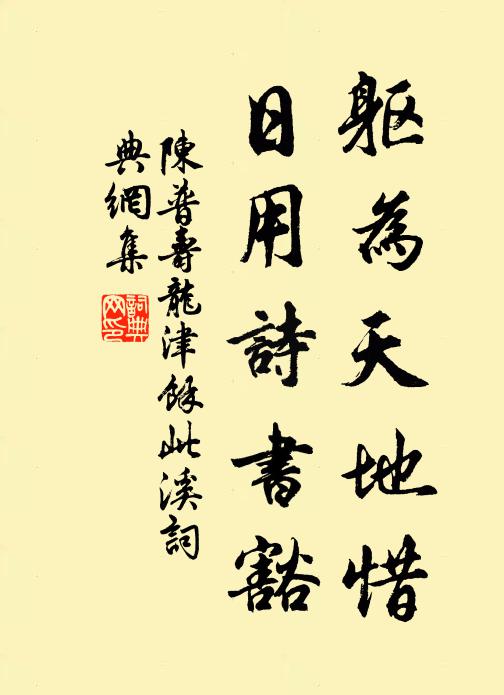 軀為天地惜
日用詩書豁
陳普壽龍津餘此溪詞
典網集
詞典网印